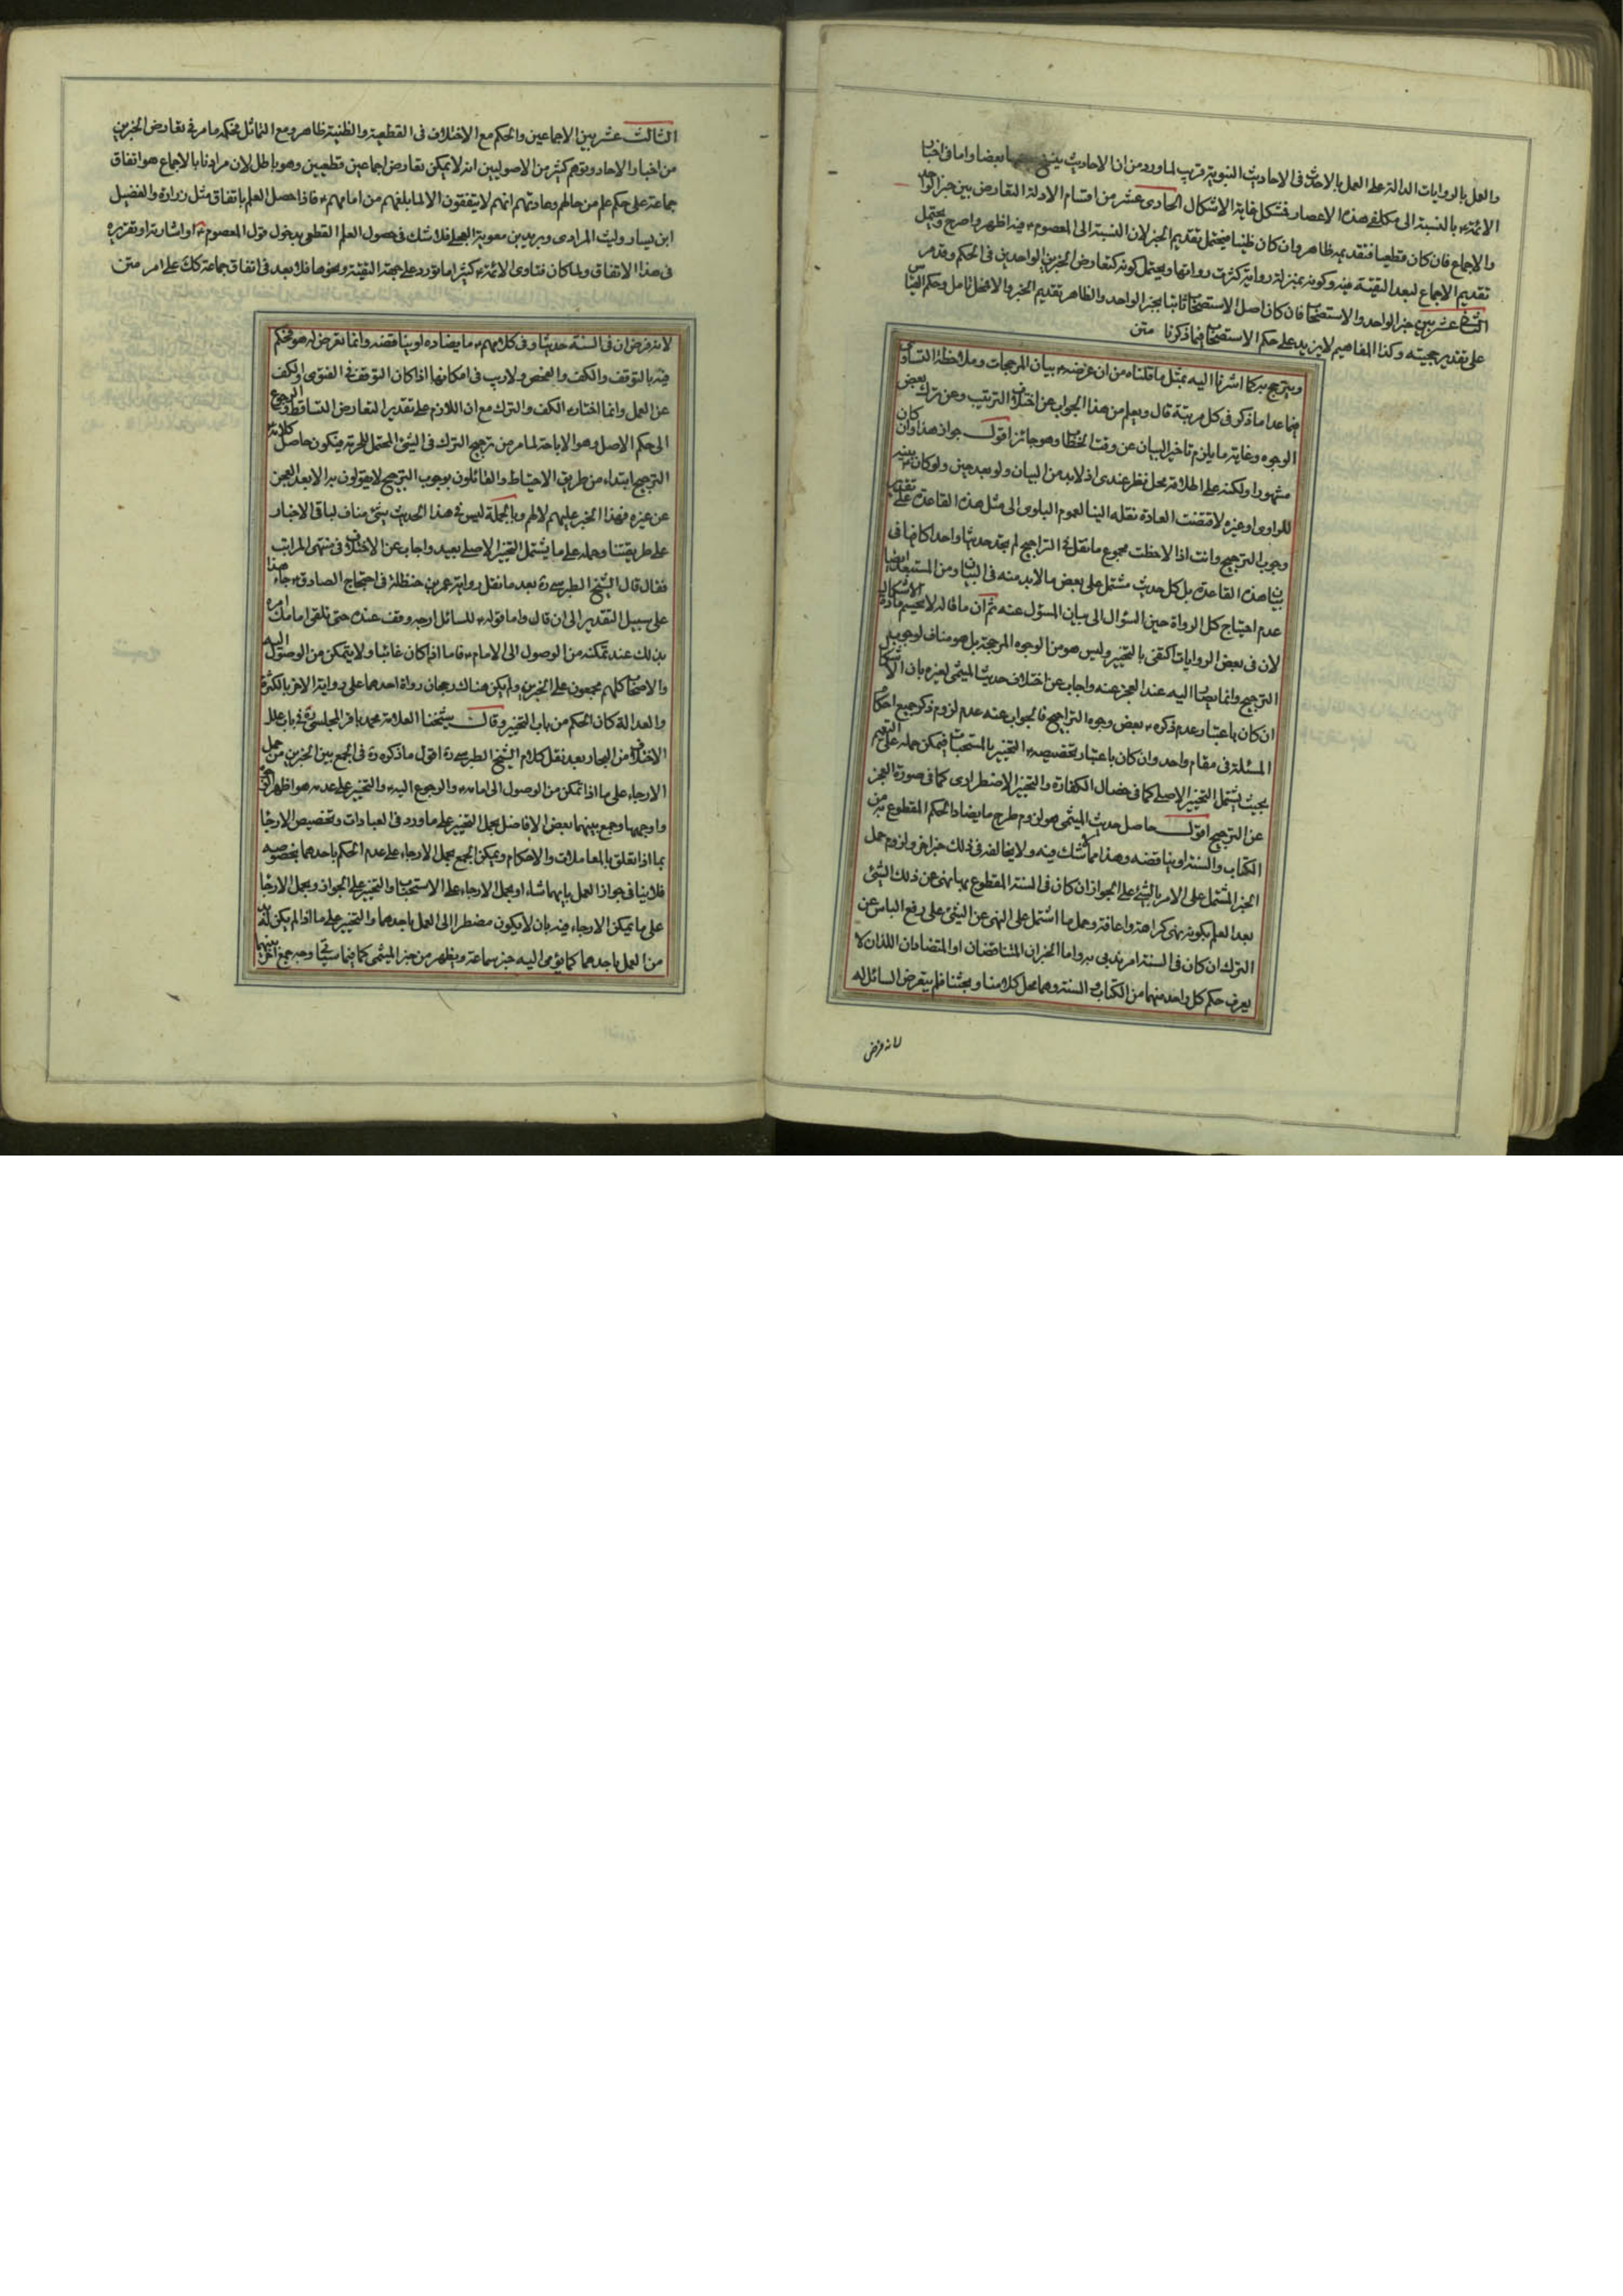 والعمل بالروايات الدالة على العمل بالاحدث فى الاحاديث النبوية قريب لما ورد من ان الاحاديث ينسخ بعضها بعضا واما فى اخبار
الائمة بالنسبة الى مكلفى هذه الاعصار فمشكل غاية الاشكال الحادى عشر من اقسام الادلة التعارض بين خبر الواحد
والاجماع فان كان قطعيا فتقديمه ظاهر وان كان ظنيا فيحتمل تقديم الخبر لان النسبة الى المعصوم فيه اظهر واصرح ويحتمل
تقديم الاجماع لبعد التقية فيه وكونه بمنزلة رواية كثرت رواتها ويحتمل كونه كتعارض الخبرين الواحدين فى الحكم وقد مر
عشر بين خبر الواحد والاستصحاب فان كان اصل الاستصحاب ثابتا بخبر الواحد والظاهر تقديم الخبر والا فمحل تامل وحكم القياس
على تقدير حجيته وكذا المفاهيم لا يزيد على حكم الاستصحاب فيما ذكرنا متن
ويترجح به كما اشرنا اليه بمثل ما قلناه من ان غرضه بيان المرجحات وملاحظة التساوى
فيما عدا ما ذكر فى كل مرتبة قال ويعلم من هذا الجواب عن اختلاف الترتيب وعن ترك بعض
الوجوه وغايته ما يلزم تاخير البيان عن وقت الخطاب وهو جائز اقول جواز هذا وان كان
مشهورا ولكنه على اطلاقه محل نظر عندى اذ لا بد من البيان ولو بعد حين ولو كان بينه
للراوى او غيره لاقتضت العادة نقله الينا لعموم البلوى الى مثل هذه القاعدة على تقدير
وجوب الترجيح وانت اذا لاحظت مجموع ما نقل فى التراجيح لم تجد حديثا واحدا كافيا فى
بيان هذه القاعدة بل كل حديث مشتمل على بعض ما لا بد منه فى البيان ومن المستبعد ايضا
عدم احتياج كل الرواة حين السؤال الى بيان المسؤل عنه ثم ان ما قاله لا يحسم مادة الاشكال
لان فى بعض الروايات اكتفى بالتخيير وليس هو من الوجوه المرجحة بل هو مناف لوجوب
الترجيح وانما يصار اليه عند العجز عنه واجاب عن اختلاف حديث الميثمى لغيره بان الاشكال
ان كان باعتبار عدم ذكره بعض وجوه التراجيح فالجواب عنه عدم لزوم ذكر جميع احكام
المسئلة فى مقام واحد وان كان باعتبار تخصيصه التخيير بالمستحبات فيمكن حمله على التعميم
بحيث يشتمل التخيير الاصلى كما فى خصال الكفارة والتخيير الاضطرارى كما فى صورة العجز
عن الترجيح اقول حاصل حديث الميثمى هو لزوم طرح ما يضاد الحكم المقطوع به من
الكتاب والسنة او يناقضه وهذا مما لا شك فيه ولا يخالفه فى ذلك خبر اخر ولزوم حمل
الخبر المشتمل على الامر بالشئ على الجواز ان كان فى السنة المقطوع بها نهى عن ذلك الشئ
بعد العلم بكونه نهى كراهة واعافة وحمل ما اشتمل على النهى عن الشئ على رفع الباس عن
الترك ان كان فى السنة امر ندبى به واما الخبران المتناقضان او المتضادان اللذان لا
يعرف حكم كل واحد منهما من الكتاب والسنة وهما محل كلامنا وبحثنا فلم يتعرض السائل له
لانه فرض
الثالث عشر بين الاجماعين والحكم مع الاختلاف فى القطعية والظنية ظاهر ومع التماثل فحكمه ما مر فى تعارض الخبرين
من اخبار الاحاد وتوهم كثير من الاصوليين انه لا يمكن تعارض اجماعين قطعيين وهو باطل لان مرادنا بالاجماع هو اتفاق
جماعة على حكم علم من حالهم وعادتهم انهم لا يتفقون الا لما بلغهم من امامهم فاذا حصل العلم باتفاق مثل زرارة والفضيل
ابن يسار وليث المرادى وبريد بن معوية العجلى فلا شك فى حصول العلم القطعى بدخول قول المعصوم او اشارته او تقريره
فى هذا الاتفاق ولما كان فتاوى الائمة كثيرا ما تورد على جهة التقية ونحوها فلا بعد فى اتفاق جماعة كك على امر متن
لانه فرض ان فى السنة حديثا وفى كلامهم ما يضاده او يناقضه وانما تعرض له هو فحكم
فيه بالتوقف والكف والفحص ولا ريب فى امكانها اذا كان التوقف فى الفتوى والكف
عن العمل وانما اختار الكف والترك مع ان اللازم على تقدير التعارض التساقط والرجوع
الى حكم الاصل وهو الاباحة لما مر من ترجيح الترك فى الشئ المحتمل للحرمة فيكون حاصل كلامه
الترجيح ابتداء من طريق الاحتياط والقائلون بوجوب الترجيح لا يقولون به الا بعد العجز
عن غيره فهذا الخبر عليهم لا لهم وبالجملة ليس فى هذا الحديث شئ مناف لباقى الاخبار
على طريقتنا وحمله على ما يشتمل التخيير الاصلى بعيد واجاب عن الاختلاف فى منتهى المراتب
فقال قال الشيخ الطبرسى ره بعد ما نقل رواية عمر بن حنظلة فى احتجاج الصادق جاء هذا
على سبيل التقدير الى ان قال واما قوله للسائل ارجه وقف عنده حتى تلقى امامك امره
بذلك عند تمكنه من الوصول الى الامام فاما اذا كان غائبا ولا يتمكن من الوصول اليه
والاصحاب كلهم مجمعون على الخبرين ولم يكن هناك رجحان رواة احدهما على رواية الاخر بالكثرة
والعدالة كان الحكم من باب التخيير وقال شيخنا العلامة محمد باقر المجلسى ره فى باب علل
الاختلاف من البحار بعد نقل كلام الشيخ الطبرسى ره اقول ما ذكره ره فى الجمع بين الخبرين من حمل
الارجاء على ما اذا تمكن من الوصول الى امامه والرجوع اليه والتخيير على عدمه هو اظهر الوجوه
واوجهها وجمع بينهما بعض الافاضل بحمل التخيير على ما ورد فى العبادات وتخصيص الارجاء
بما اذا تعلق بالمعاملات والاحكام ويمكن الجمع بحمل الارجاء على عدم الحكم باحدهما بخصوصه
فلا ينافى جواز العمل بايهما شاء او بحمل الارجاء على الاستحباب والتخيير على الجواز وبحمل الارجاء
على ما يمكن الارجاء فيه بان لا يكون مضطرا الى العمل باحدهما والتخيير على ما اذا لم يكن له بد
من العمل باحدهما كما يؤمى اليه خبر سماعة ويظهر من خبر الميثمى كما فيما سياتى وجه جمع اخر بينهما